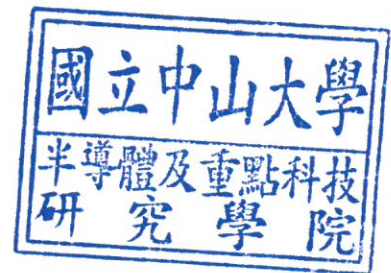 國立中山大學
半導體及重點科技
研究學院